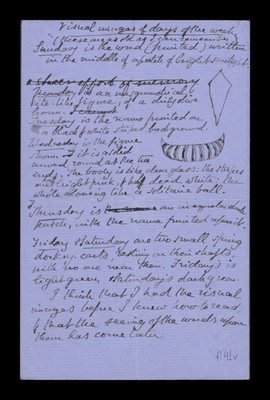 Visual images of days of the week
(these are as old as I can remember)
Sunday is the word (printed) written
in the middle of a patch of bright sunlight.
a sheer effort of memory
Monday is an unsymmetrical
kite-like figure, of a dingy
brown.
Tuesday is the name printed on
a black & white striped background.
Wednesday is the figure
shown
round as the two
ends. The body is like clear glass: the stripes
are bright pink, & dead white: the
whole
Thursday is an irregular dark
with the name printed upon it.
Friday & Saturday are two small spring
donkey-carts, resting on their shafts,
with no one near them, Friday's is
light green, Saturday's dark green.
I think that I had the visual
images before I knew how to read,
& that the seeing of the words upon
them has come later.